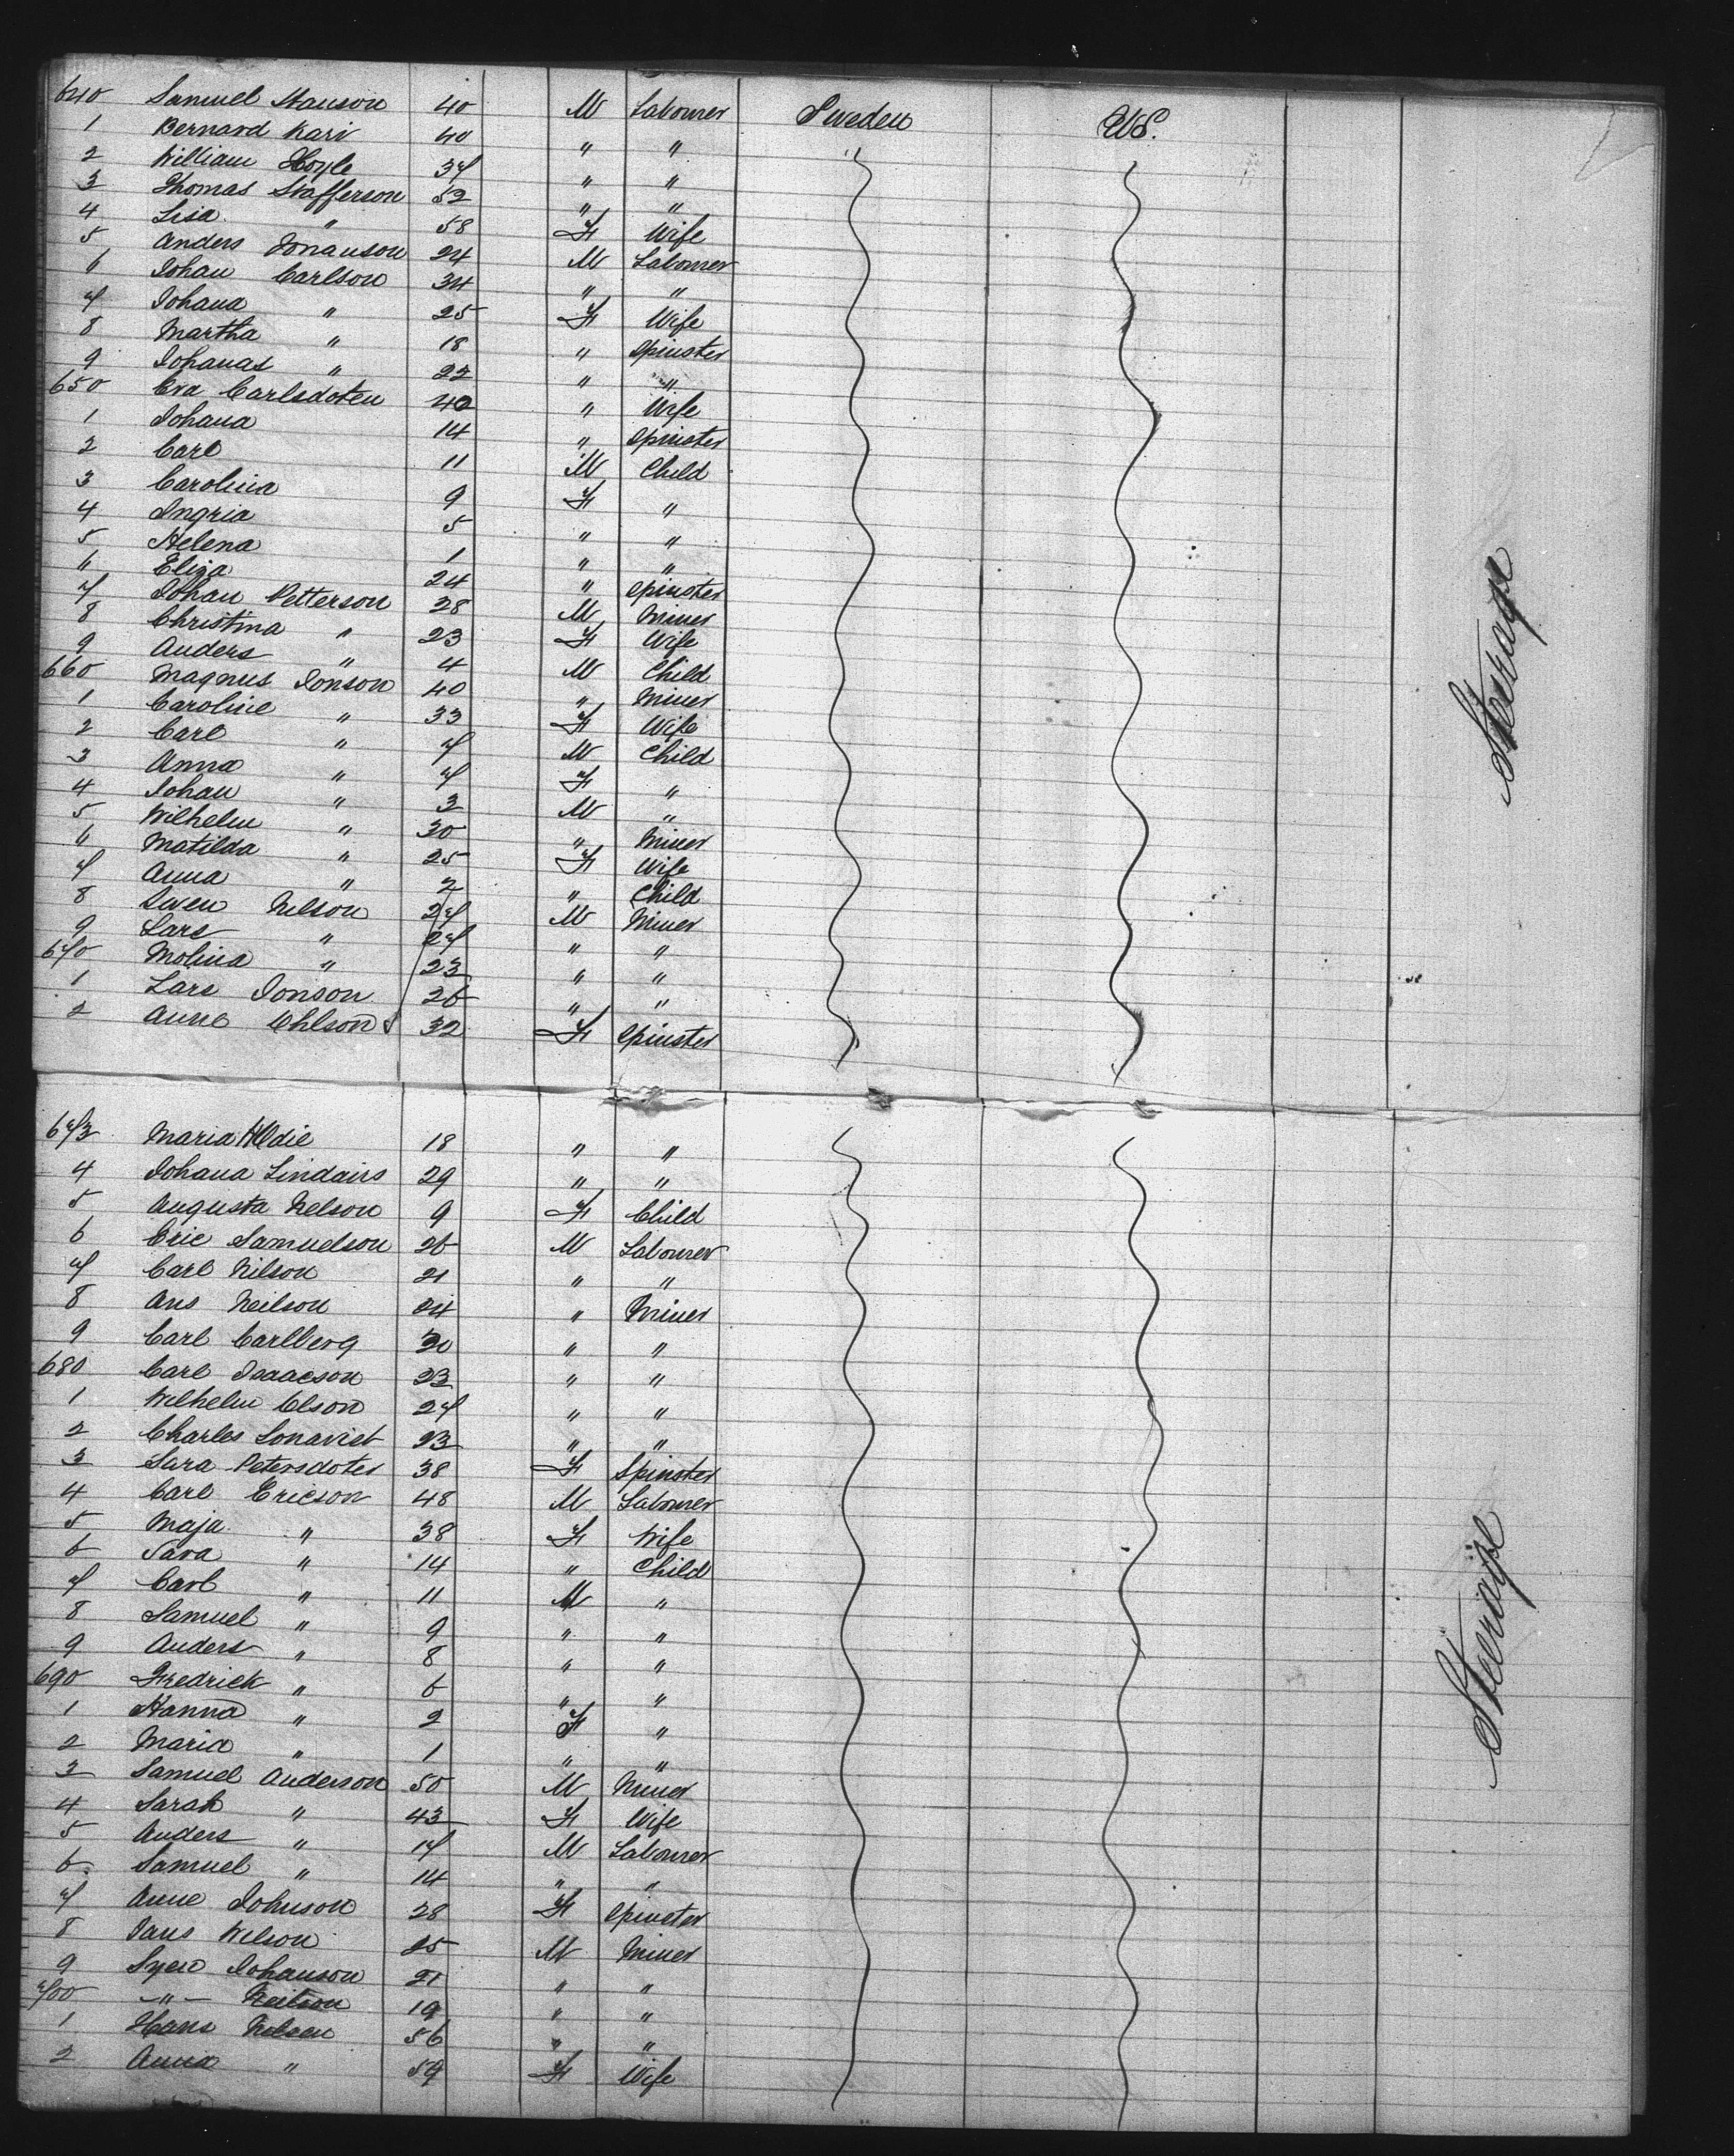 640 Samuel Hanson 40 M Labourer Sweden U.S.
1 Bernard Kari 40 " "
2 William Hoyle 37 " "
3 Thomas Stafferson 52 " "
4 Lisa " 58 F Wife
5 Anders Jonanson 24 M Labourer
6 Johan Carlson 34 " "
7 Johana " 25 F Wife
8 Martha " 18 " Spinster
9 Johanas " 22 " "
650 Eva Carlsdoten 40 " Wife
1 Johana 14 " Spinster
2 Carl 11 M Child
3 Carolina 9 F "
4 Ingria 5 " "
5 Helena 1 " "
6 Eliza 24 " Spinster
7 Johan Petterson 28 M Miner
8 Christina " 23 F Wife
9 Anders " 4 M Child
660 Magnus Jonson 40 " Miner
1 Caroline " 33 F Wife
2 Carl " 7 M Child
3 Anna " 7 F "
4 Johan " 3 M "
5 Wilhelm " 30 " Miner
6 Matilda " 25 F Wife
7 Anna " 2 " Child
8 Swen Nelson 27 M Miner
9 Lars " 27 " "
670 Molina " 23 " "
1 Lars Jonson 26 " "
2 Anne Ohlson 32 F Spinster
Steerage
673 Maria 18 " "
4 Johana Lindairs 29 " "
5 Augusta Nelson 9 F Child
6 Eric Samuelson 26 M Labourer
7 Carl Nilson 21 " "
8 Ans Neilson 24 " Miner
9 Carl Carlberg 30 " "
680 Carl Isaacson 23 " "
1 Wilhelm Olson 27 " "
2 Charles Lonavist 23 " "
3 Sara Petersdoter 38 F Spinster
4 Carl Ericson 48 M Labourer
5 Maja " 38 F Wife
6 Sara " 14 " Child
7 Carl " 11 M "
8 Samuel " 9 " "
9 Anders " 8 " "
690 Fredrick " 6 " "
1 Hanna " 2 F "
2 Maria " 1 " "
3 Samuel Anderson 50 M Miner
4 Sarah " 43 F Wife
5 Anders " 17 M Labourer
6 Samuel " 14 " "
7 Anne Johnson 28 F Spinster
8 Jans Nelson 25 M Miner
9 Sven Johanson 21 " "
700 -"- Neilson 19 " "
1 Hans Nelson 56 " "
2 Anna " 59 F Wife
Steerage